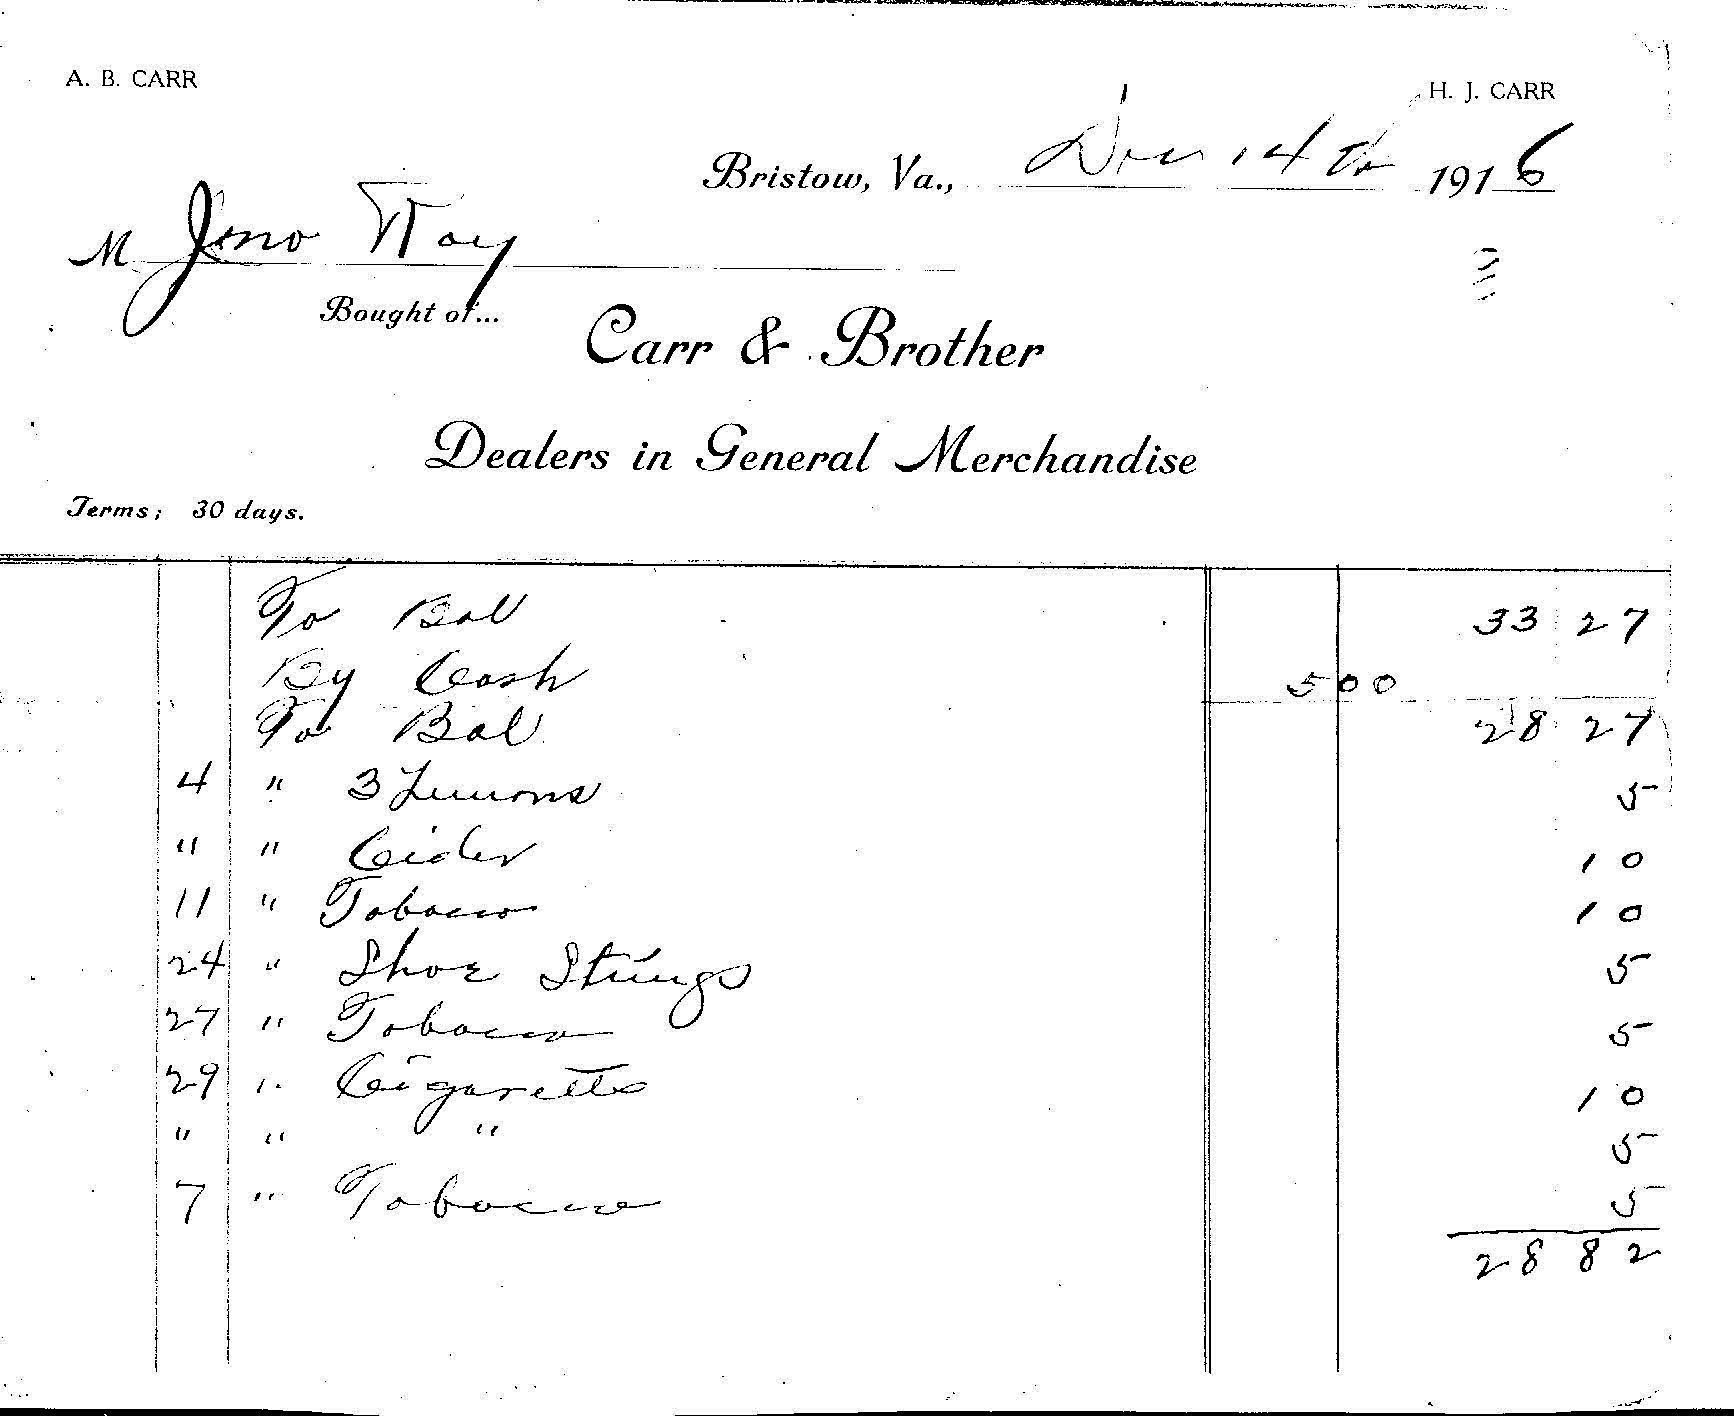 A. B. CARR
H. J. CARR
Bristow, Va., Dec 14th 1916
M Jno
Bought of...
Carr & Brother
Dealers in General Merchandise
Terms; 30 days.
To Bal 33 27
By Cash 5 00
To Bal 28 27
4 " 3 Lemons 5
" " Cider 10
11 " Tobacco 10
24 " Shoe Strings 5
27 " Tobacco 5
29 " Cigaretts 10
" " " 5
7 " Tobacco 5
28 82